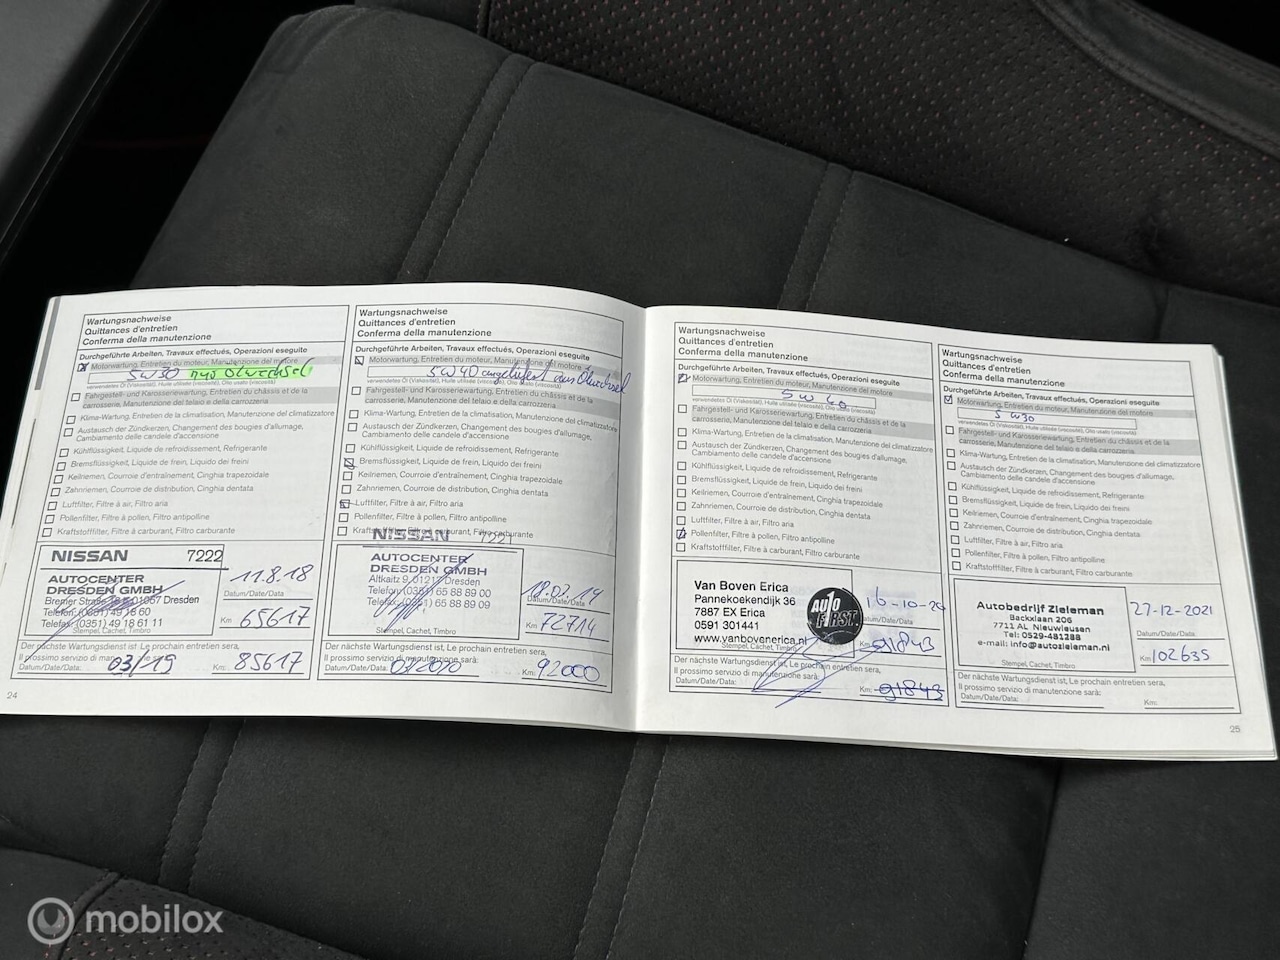 Wartungsnachweise
Quittances d'entretien
Conferma della manutenzione
Durchgeführte Arbeiten, Travaux effectués, Operazioni eseguite
Motorwartung, Entretien du moteur, Manutenzione del motore
5W30 nur Ölwechsel
verwendetes Öl (Viskosität), Huile utilisée (viscosité), Olio usato (viscosità)
Fahrgestell- und Karosseriewartung, Entretien du châssis et de la
carrosserie, Manutenzione del telaio e della carrozzeria
Klima-Wartung, Entretien de la climatisation, Manutenzione del climatizzatore
Austausch der Zündkerzen, Changement des bougies d'allumage,
Cambiamento delle candele d'accensione
Kühlflüssigkeit, Liquide de refroidissement, Refrigerante
Bremsflüssigkeit, Liquide de frein, Liquido dei freini
Keilriemen, Courroie d'entraînement, Cinghia trapezoidale
Zahnriemen, Courroie de distribution, Cinghia dentata
Luftfilter, Filtre à air, Filtro aria
Pollenfilter, Filtre à pollen, Filtro antipolline
Kraftstofffilter, Filtre à carburant, Filtro carburante
NISSAN 7222
AUTOCENTER
DRESDEN GMBH
Bremer Straße 01067 Dresden
Telefon: (0351) 49 18 60
Telefax: (0351) 49 18 61 11
Stempel, Cachet, Timbro
11.8.18
Datum/Date/Data
Km 65617
Der nächste Wartungsdienst ist, Le prochain entretien sera,
Il prossimo servizio di manutenzione sarà:
Datum/Date/Data: 03/19
Km: 85617
24
Wartungsnachweise
Quittances d'entretien
Conferma della manutenzione
Durchgeführte Arbeiten, Travaux effectués, Operazioni eseguite
Motorwartung, Entretien du moteur, Manutenzione del motore
5W40 Ölwechsel
verwendetes Öl (Viskosität), Huile utilisée (viscosité), Olio usato (viscosità)
Fahrgestell- und Karosseriewartung, Entretien du châssis et de la
carrosserie, Manutenzione del telaio e della carrozzeria
Klima-Wartung, Entretien de la climatisation, Manutenzione del climatizzatore
Austausch der Zündkerzen, Changement des bougies d'allumage,
Cambiamento delle candele d'accensione
Kühlflüssigkeit, Liquide de refroidissement, Refrigerante
Bremsflüssigkeit, Liquide de frein, Liquido dei freini
Keilriemen, Courroie d'entraînement, Cinghia trapezoidale
Zahnriemen, Courroie de distribution, Cinghia dentata
Luftfilter, Filtre à air, Filtro aria
Pollenfilter, Filtre à pollen, Filtro antipolline
Kraftstofffilter, Filtre à carburant, Filtro carburante
NISSAN
AUTOCENTER
DRESDEN GMBH
Altkaitz 9, 01217 Dresden
Telefon: (0351) 65 88 89 00
Telefax: (0351) 65 88 89 09
Stempel, Cachet, Timbro
Datum/Date/Data
Km 72714
Der nächste Wartungsdienst ist, Le prochain entretien sera,
Il prossimo servizio di manutenzione sarà:
Datum/Date/Data:
Km: 92000
Wartungsnachweise
Quittances d'entretien
Conferma della manutenzione
Durchgeführte Arbeiten, Travaux effectués, Operazioni eseguite
Motorwartung, Entretien du moteur, Manutenzione del motore
5W40
verwendetes Öl (Viskosität), Huile utilisée (viscosité), Olio usato (viscosità)
Fahrgestell- und Karosseriewartung, Entretien du châssis et de la
carrosserie, Manutenzione del telaio e della carrozzeria
Klima-Wartung, Entretien de la climatisation, Manutenzione del climatizzatore
Austausch der Zündkerzen, Changement des bougies d'allumage,
Cambiamento delle candele d'accensione
Kühlflüssigkeit, Liquide de refroidissement, Refrigerante
Bremsflüssigkeit, Liquide de frein, Liquido dei freini
Keilriemen, Courroie d'entraînement, Cinghia trapezoidale
Zahnriemen, Courroie de distribution, Cinghia dentata
Luftfilter, Filtre à air, Filtro aria
Pollenfilter, Filtre à pollen, Filtro antipolline
Kraftstofffilter, Filtre à carburant, Filtro carburante
Van Boven Erica
Pannekoekendijk 36
7887 EX Erica
0591 301441
www.vanbovenerica.nl
AUTO
FIRST
Stempel, Cachet, Timbro
16-10-20
Datum/Date/Data
91843
Der nächste Wartungsdienst ist, Le prochain entretien sera,
Il prossimo servizio di manutenzione sarà:
Datum/Date/Data:
Km: 91843
Wartungsnachweise
Quittances d'entretien
Conferma della manutenzione
Durchgeführte Arbeiten, Travaux effectués, Operazioni eseguite
Motorwartung, Entretien du moteur, Manutenzione del motore
5W30
verwendetes Öl (Viskosität), Huile utilisée (viscosité), Olio usato (viscosità)
Fahrgestell- und Karosseriewartung, Entretien du châssis et de la
carrosserie, Manutenzione del telaio e della carrozzeria
Klima-Wartung, Entretien de la climatisation, Manutenzione del climatizzatore
Austausch der Zündkerzen, Changement des bougies d'allumage,
Cambiamento delle candele d'accensione
Kühlflüssigkeit, Liquide de refroidissement, Refrigerante
Bremsflüssigkeit, Liquide de frein, Liquido dei freini
Keilriemen, Courroie d'entraînement, Cinghia trapezoidale
Zahnriemen, Courroie de distribution, Cinghia dentata
Luftfilter, Filtre à air, Filtro aria
Pollenfilter, Filtre à pollen, Filtro antipolline
Kraftstofffilter, Filtre à carburant, Filtro carburante
Autobedrijf Zieleman
Backxlaan 206
7711 AL Nieuwleusen
Tel: 0529-481288
e-mail: info@autozieleman.nl
Stempel, Cachet, Timbro
27-12-2021
Datum/Date/Data
Km 102635
Der nächste Wartungsdienst ist, Le prochain entretien sera,
Il prossimo servizio di manutenzione sarà:
Datum/Date/Data:
Km:
25
mobilox